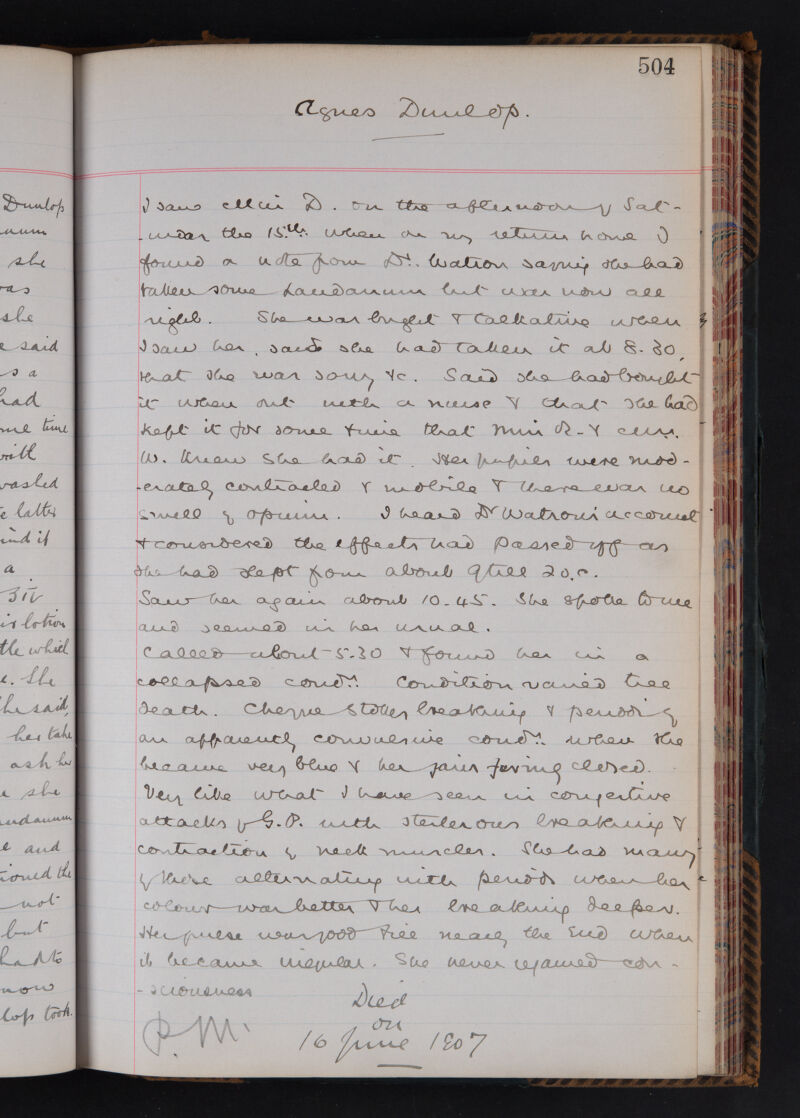 504
Agnes Dunlop.
Dunlop
she
she
said
a
had
time
with
washed
latter
a
lotion
the which
She
he said,
her take
ask her
she
and
the
not
but
had to
now
took.
I saw Miss D. on the afternoon of Sat-
-urday the 15th. when on my return home I
found a note from Dr. Watson saying she had
taken some Laudanum but was now all
right. She was bright & talkative when
I saw her, said she had taken it at 8.30,
that she was sorry &c. Said she had bought
it when out with a nurse & that she had
kept it for some time that Miss R. &
W. knew she had it. Her pupils were mod-
-erately contracted & mobile & there was no
smell of opium. I heard Dr Watson's account
& considered the effects had passed off as
she had slept from about 9 till 2 o.c.
Saw her again about 10.45. She spoke to me
and seemed in her usual.
Called about 5.30 & found her in a
collapsed condn. Condition varied till
death. Cheyne Stokes breathing & periods of
an apparently convulsive condn. when she
became very blue & her jaws firmly closed.
Very like what I have seen in congestive
attacks of G.P. with sterterous breathing &
contraction of neck muscles. She had many
of these alternating with periods when her
colour was better & her breathing deeper.
Her pulse was good till nearly the end when
it became irregular. She never regained con-
-sciousness
Died
on
P.M. 16 June 1907